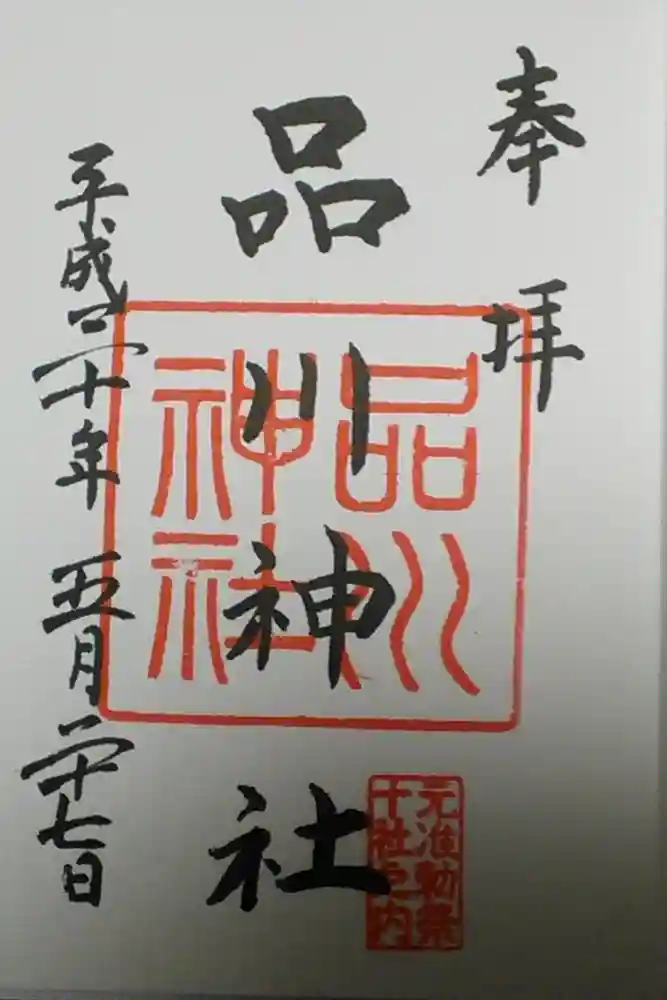 奉拝
品川神社
平成三十年五月二十七日
品川
神社
元准勅祭
十社之内